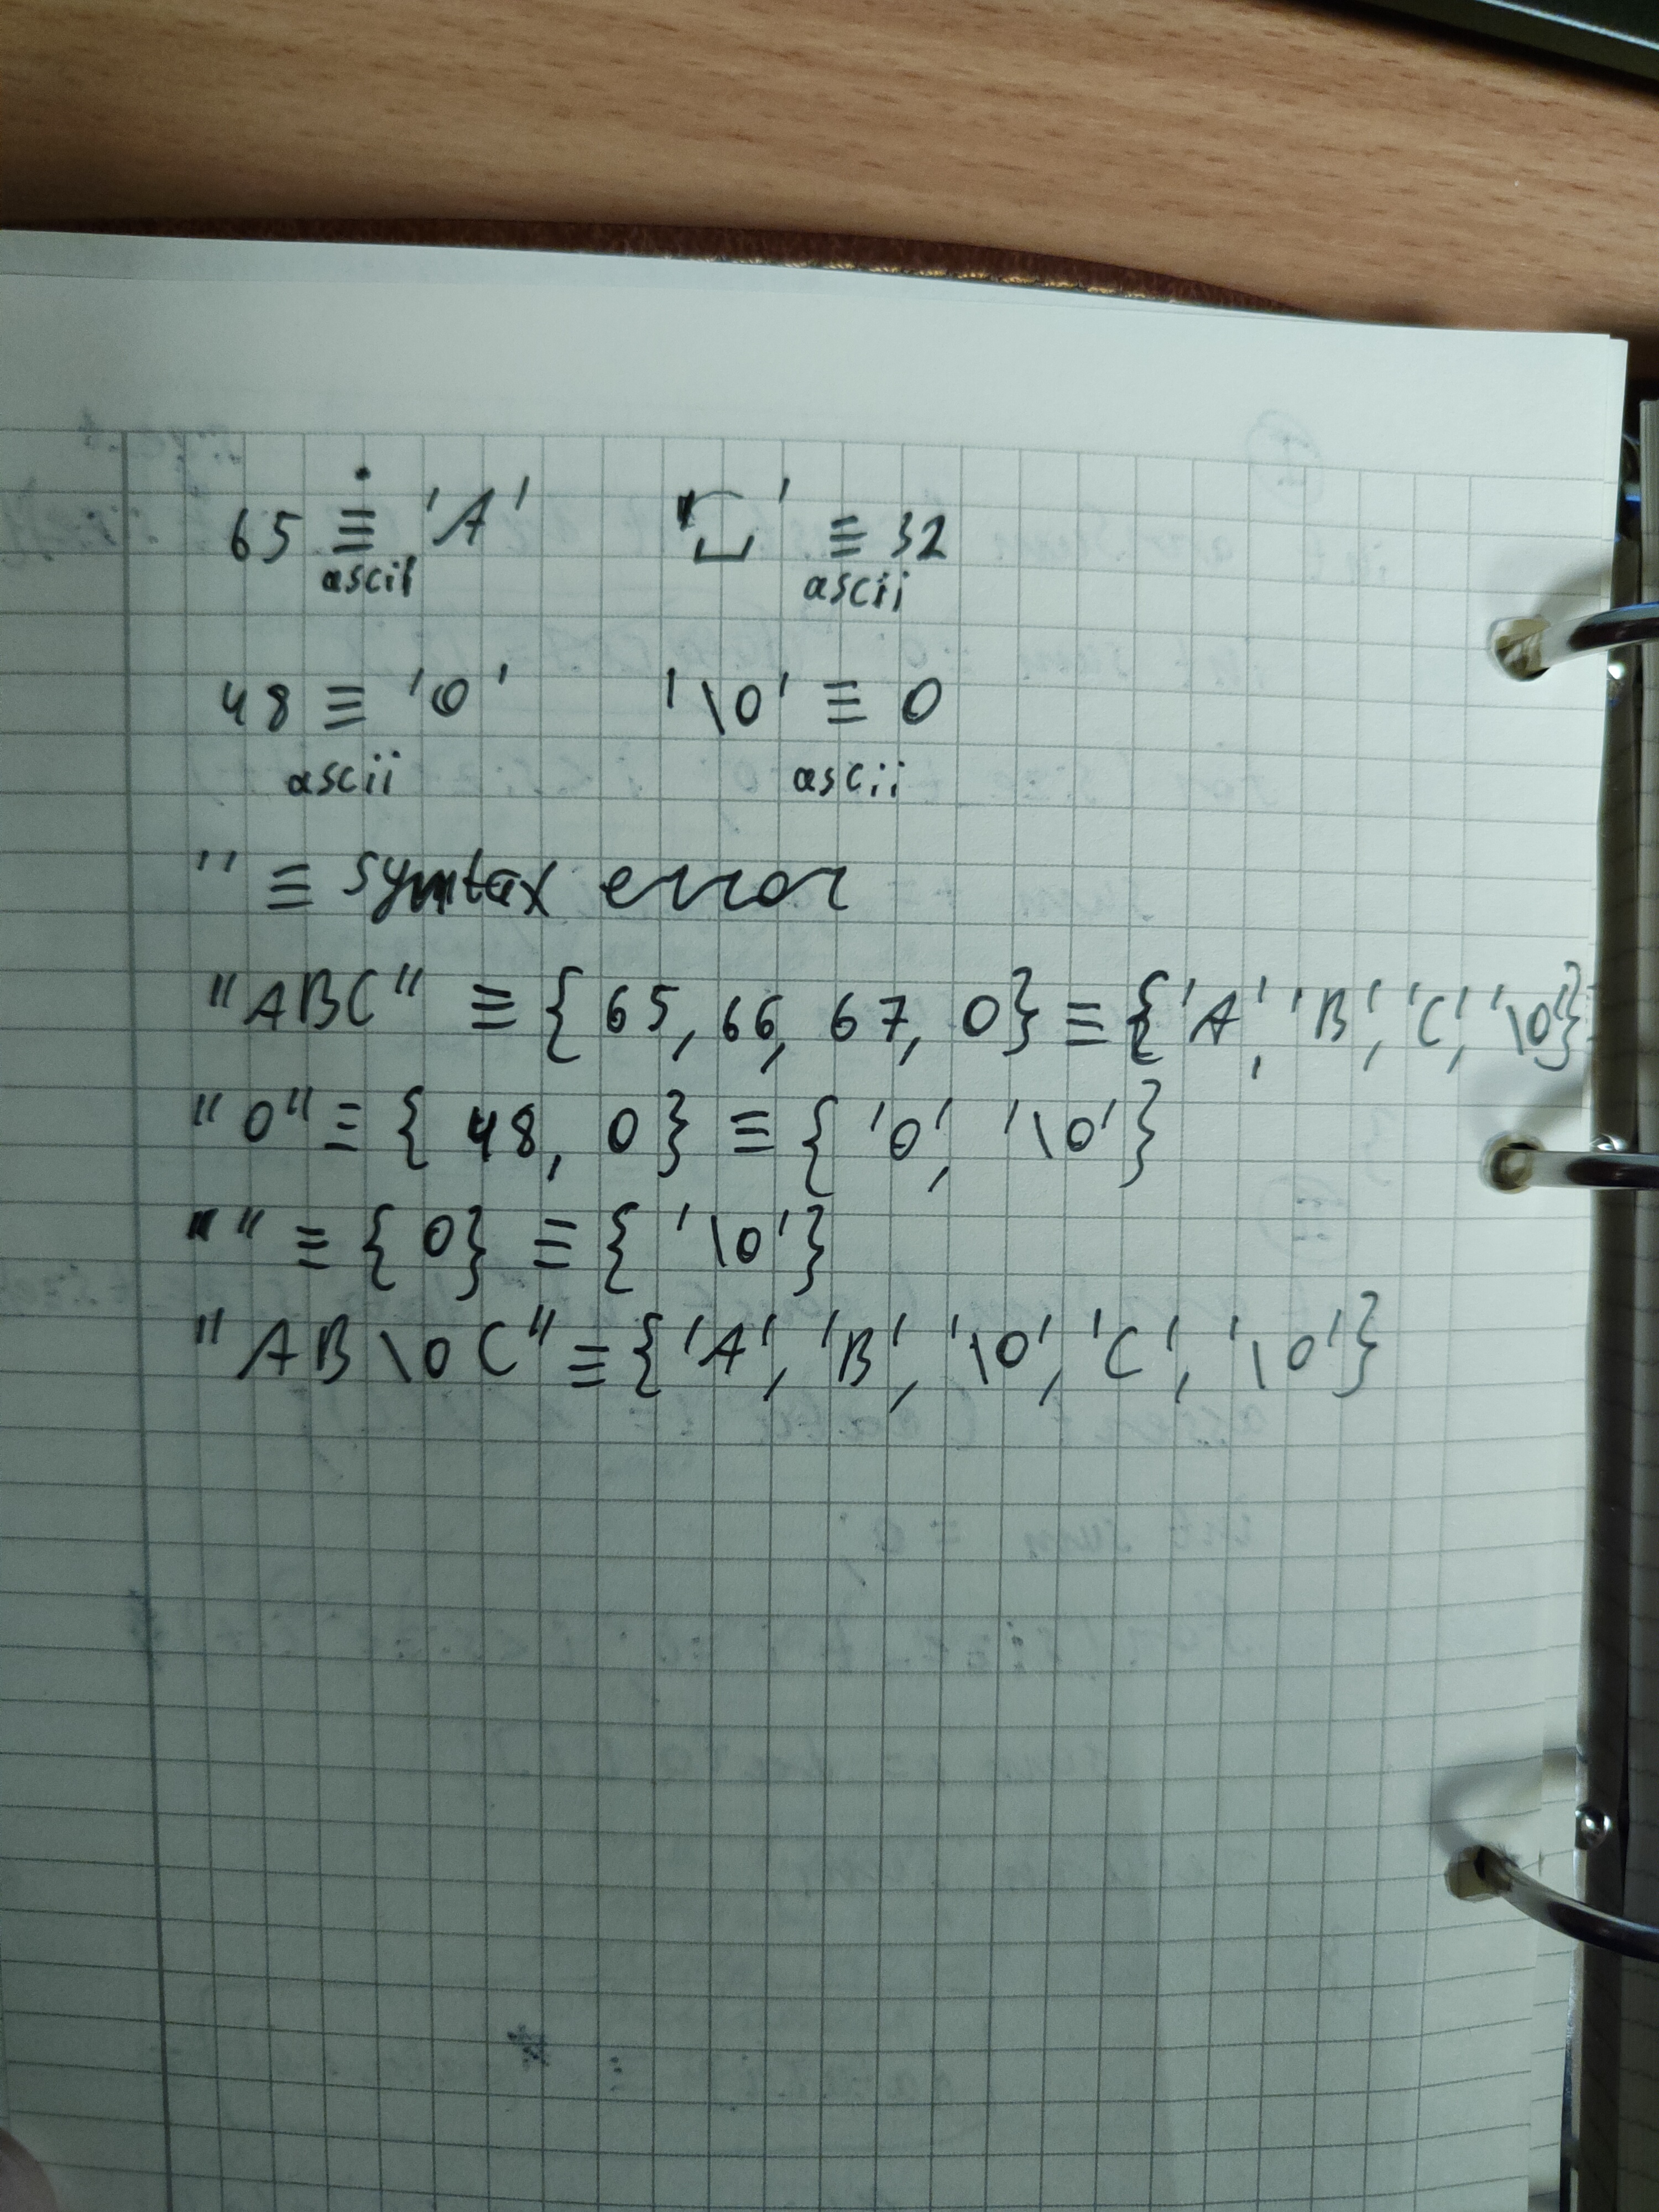 65 ≡ 'A' '␣' ≡ 32
ascii ascii
48 ≡ '0' '\0' ≡ 0
ascii ascii
'' ≡ syntax error
"ABC" ≡ { 65, 66, 67, 0} ≡ {'A', 'B', 'C', '\0'}
"0" ≡ { 48, 0} ≡ { '0', '\0'}
"" ≡ { 0} ≡ { '\0'}
"AB\0C" ≡ {'A', 'B', '\0', 'C', '\0'}